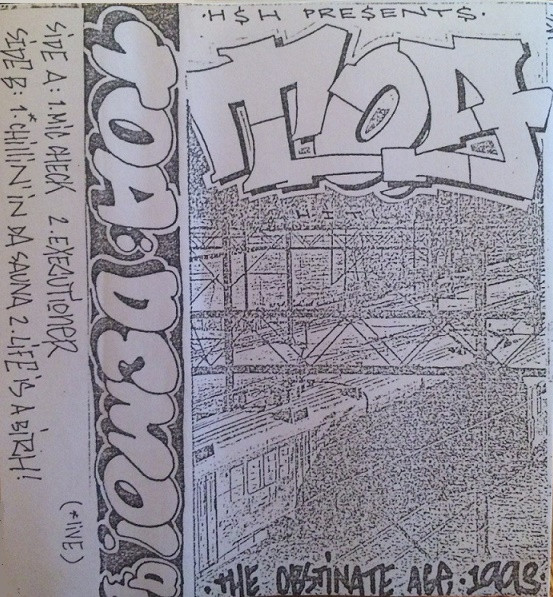 SIDE A: 1.MIC CHECK 2.EXECUTIONER
SIDE B: 1.*CHILLIN' IN DA SAUNA 2.LIFE IS A BITCH!
(*LIVE)
TOA: DEMO!
·H$H PRE$ENT$·
TOA
·THE OBSTINATE AGE·1993·